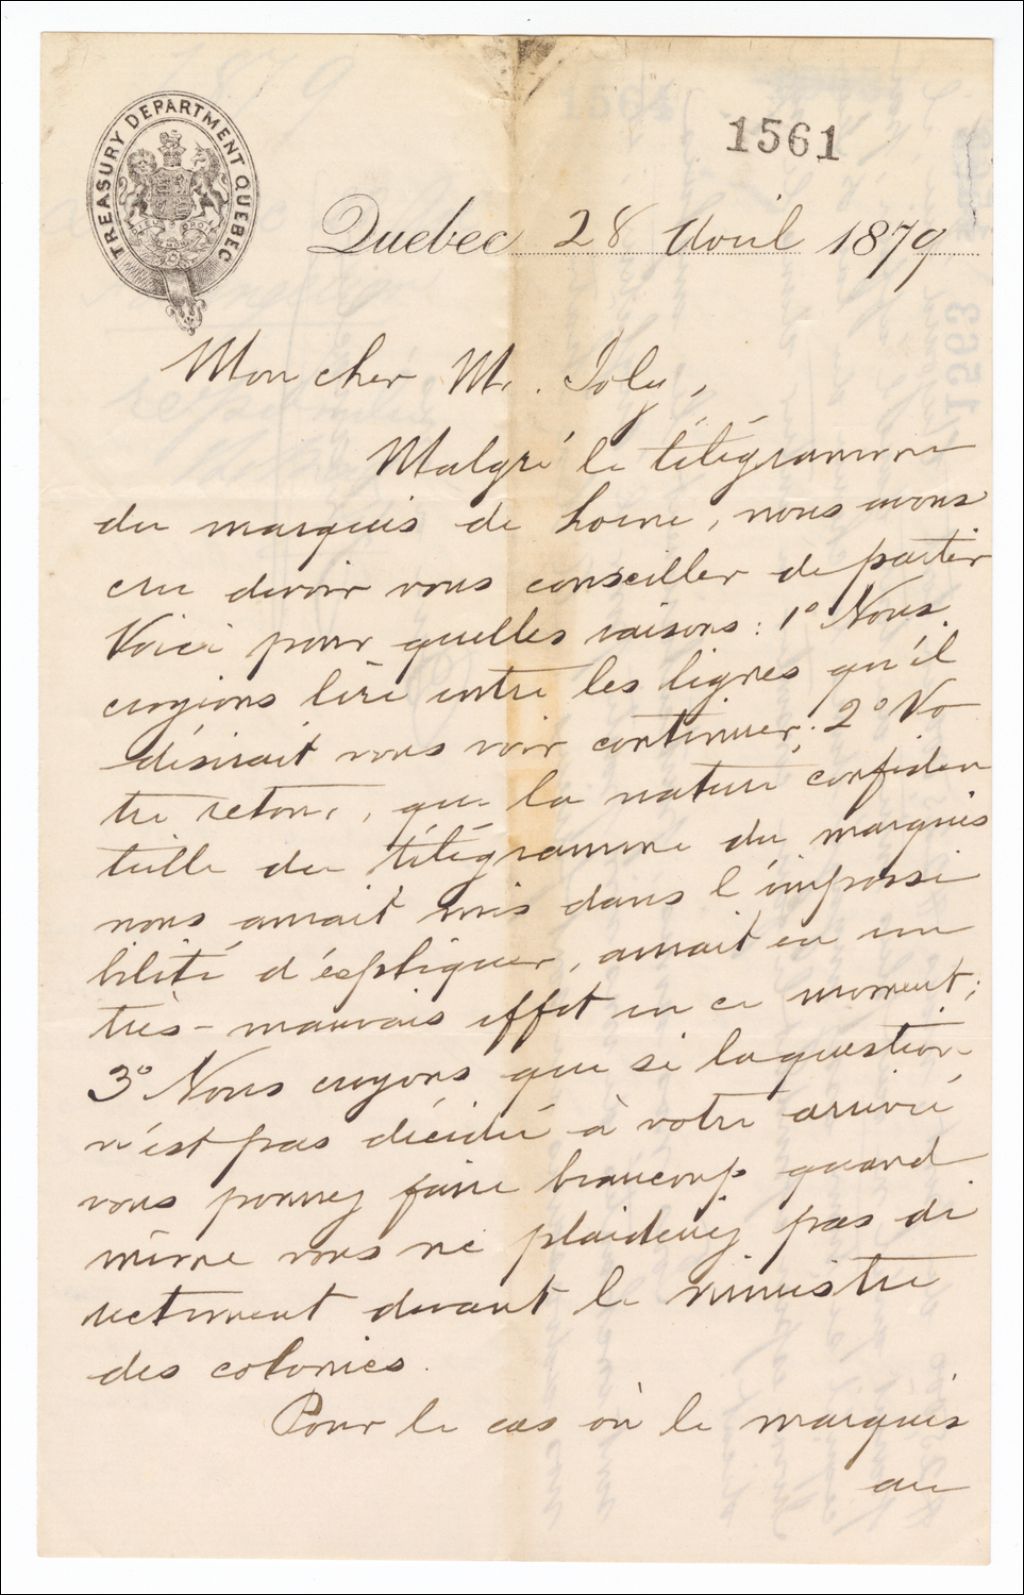 TREASURY DEPARTMENT QUEBEC
1561
Quebec 28 Avril 1879
Mon cher M. Joly,
Malgré le télégramme
du marquis de Lorne, nous avons
cru devoir vous conseiller de partir
Voici pour quelles raisons : 1º Nous
croyions lire entre les lignes qu'il
désirait vous voir continuer; 2º Vo
tre retour, que la nature confiden
tielle du télégramme du marquis
nous aurait mis dans l'impossi
bilité d'expliquer, aurait eu un
très-mauvais effet en ce moment;
3º Nous croyons que si la question
n'est pas décidée à votre arrivée
vous pourrez faire beaucoup quand
même vous ne plaideriez pas di
rectement devant le ministre
des colonies.
Pour le cas où le marquis
au